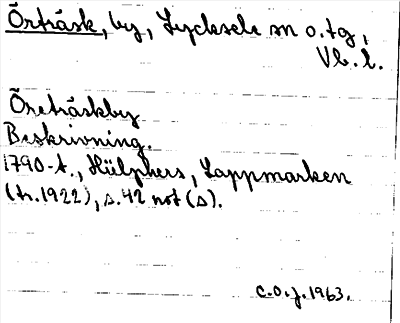 Örträsk, by, Lycksele sn o. tg,
Vb. l.
Öreträskby
Beskrivning.
1790-t., Hülphers, Lappmarken
(tr. 1922), s. 42 not (s).
C.O.J. 1963.